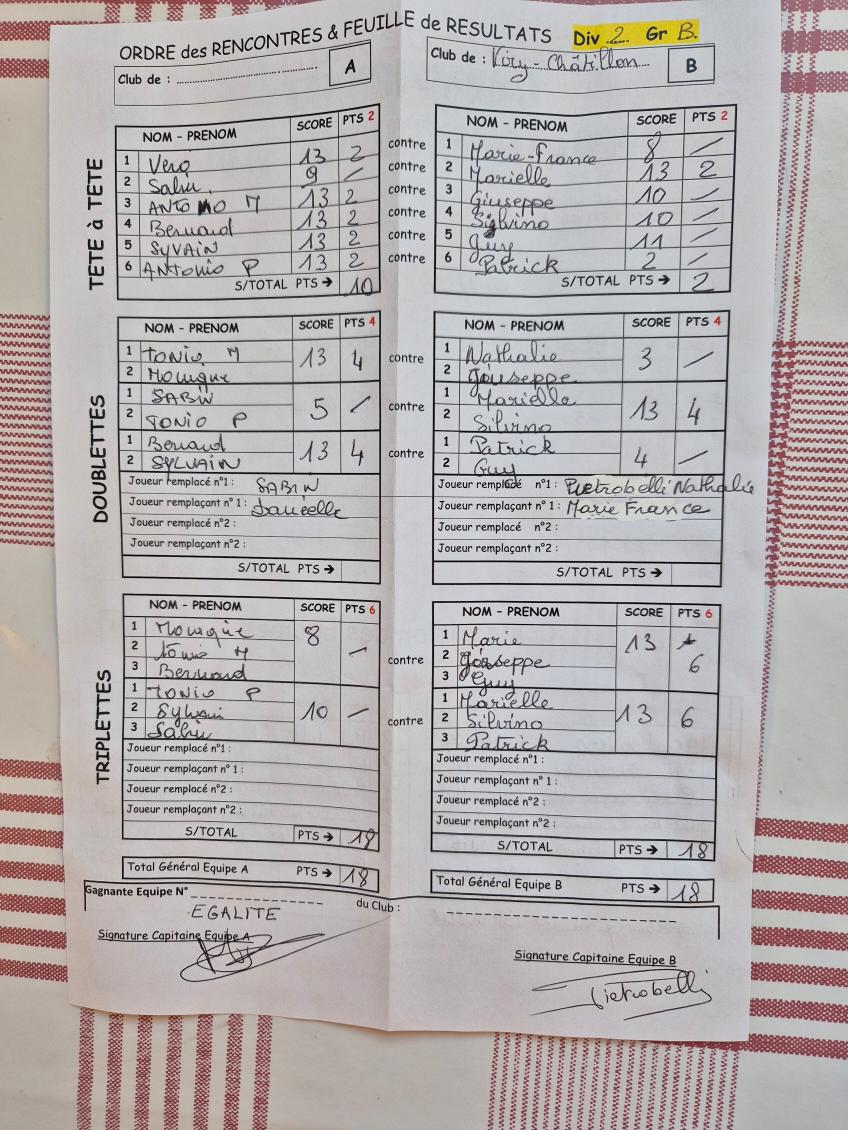 ORDRE des RENCONTRES & FEUILLE de RESULTATS Div 2 Gr B.
Club de : A Club de : Viry-Châtillon B
TETE à TETE
NOM - PRENOM SCORE PTS 2 contre NOM - PRENOM SCORE PTS 2
1 Vero 13 2 contre 1 Marie-France 8 /
2 Sabin 9 / contre 2 Marielle 13 2
3 ANTONIO M 13 2 contre 3 Giuseppe 10 /
4 Bernard 13 2 contre 4 Silvino 10 /
5 SYVAIN 13 2 contre 5 Guy 11 /
6 ANTONIO P 13 2 contre 6 Patrick 2 /
S/TOTAL PTS → 10 S/TOTAL PTS → 2
DOUBLETTES
NOM - PRENOM SCORE PTS 4 NOM - PRENOM SCORE PTS 4
1 TONIO M 13 4 contre 1 Nathalie 3 /
2 Monique 2 Jouseppe
1 SABIN 5 / contre 1 Marielle 13 4
2 TONIO P 2 Silvino
1 Bernard 13 4 contre 1 Patrick 4 /
2 SYLVAIN 2 Guy
Joueur remplacé n°1 : SABIN Joueur remplacé n°1 : Pietrobelli Nathalie
Joueur remplaçant n° 1 : Danielle Joueur remplaçant n° 1 : Marie France
Joueur remplacé n°2 : Joueur remplacé n°2 :
Joueur remplaçant n°2 : Joueur remplaçant n°2 :
S/TOTAL PTS → S/TOTAL PTS →
TRIPLETTES
NOM - PRENOM SCORE PTS 6 NOM - PRENOM SCORE PTS 6
1 Monique 8 / contre 1 Marie 13 6
2 Tonio M 2 Joseppe
3 Bernard 3 Guy
1 TONIO P 10 / contre 1 Marielle 13 6
2 Sylvain 2 Silvino
3 Sabin 3 Patrick
Joueur remplacé n°1 : Joueur remplacé n°1 :
Joueur remplaçant n° 1 : Joueur remplaçant n° 1 :
Joueur remplacé n°2 : Joueur remplacé n°2 :
Joueur remplaçant n°2 : Joueur remplaçant n°2 :
S/TOTAL PTS → 18 S/TOTAL PTS → 18
Total Général Equipe A PTS → 18 Total Général Equipe B PTS → 18
Gagnante Equipe N° EGALITE du Club :
Signature Capitaine Equipe A Signature Capitaine Equipe B
Pietrobelli